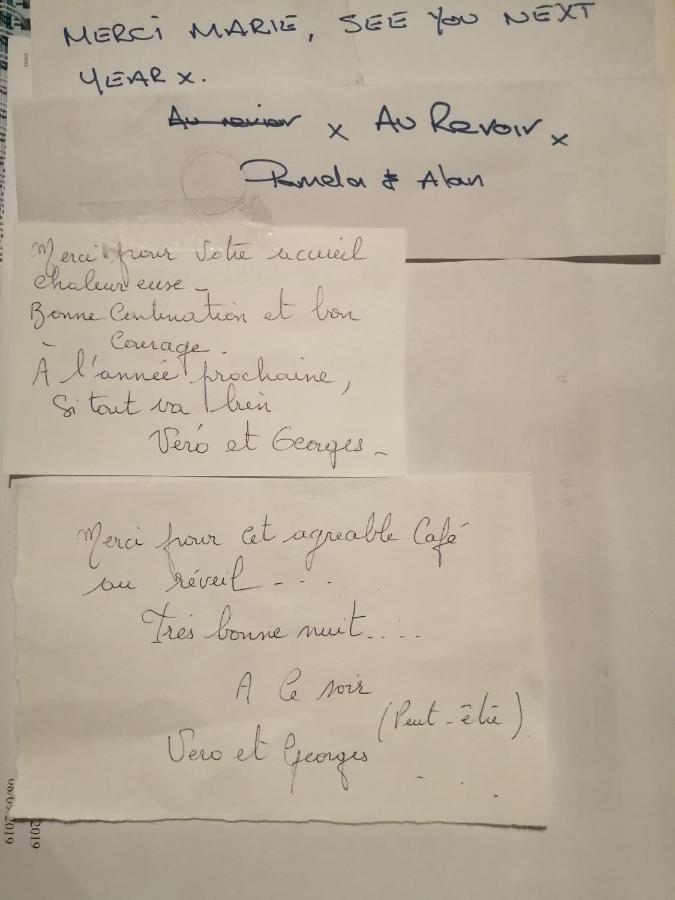 MERCI MARIE, SEE YOU NEXT
YEAR x.
Au revoir x Au Revoir x
Pamela & Alan
Merci pour votre accueil
chaleureuse -
Bonne Continuation et bon
Courage.
A l'année prochaine,
Si tout va bien
Véro et Georges -
Merci pour cet agreable Café
au réveil - . . .
Trés bonne nuit....
A Ce soir
(Peut-être)
Vero et Georges
2019
2019